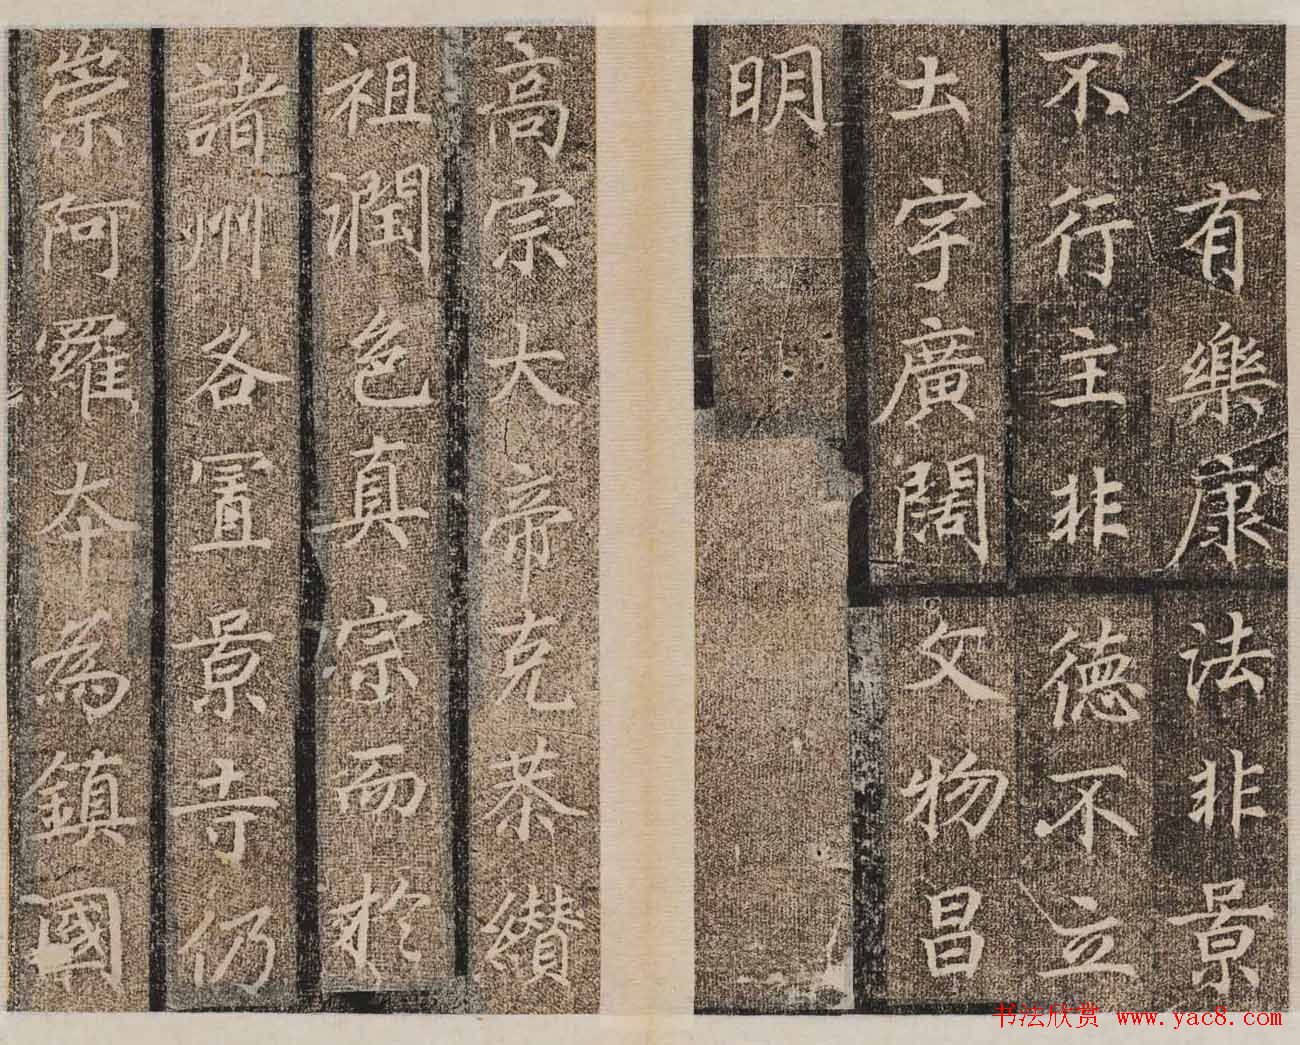 人有樂康法非景
不行主非德不立
土宇廣闊文物昌
明
高宗大帝克恭纘
祖潤色真宗而於
諸州各置景寺仍
崇阿羅本為鎮國
书法欣赏 www.yac8.com